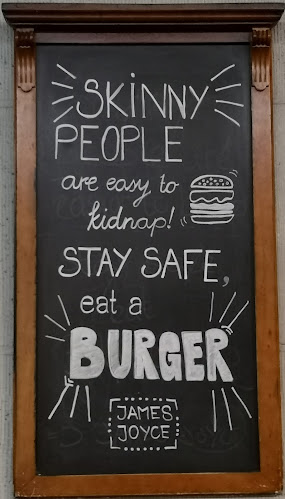 SKINNY
PEOPLE
are easy to
kidnap!
STAY SAFE,
eat a
BURGER
JAMES
JOYCE